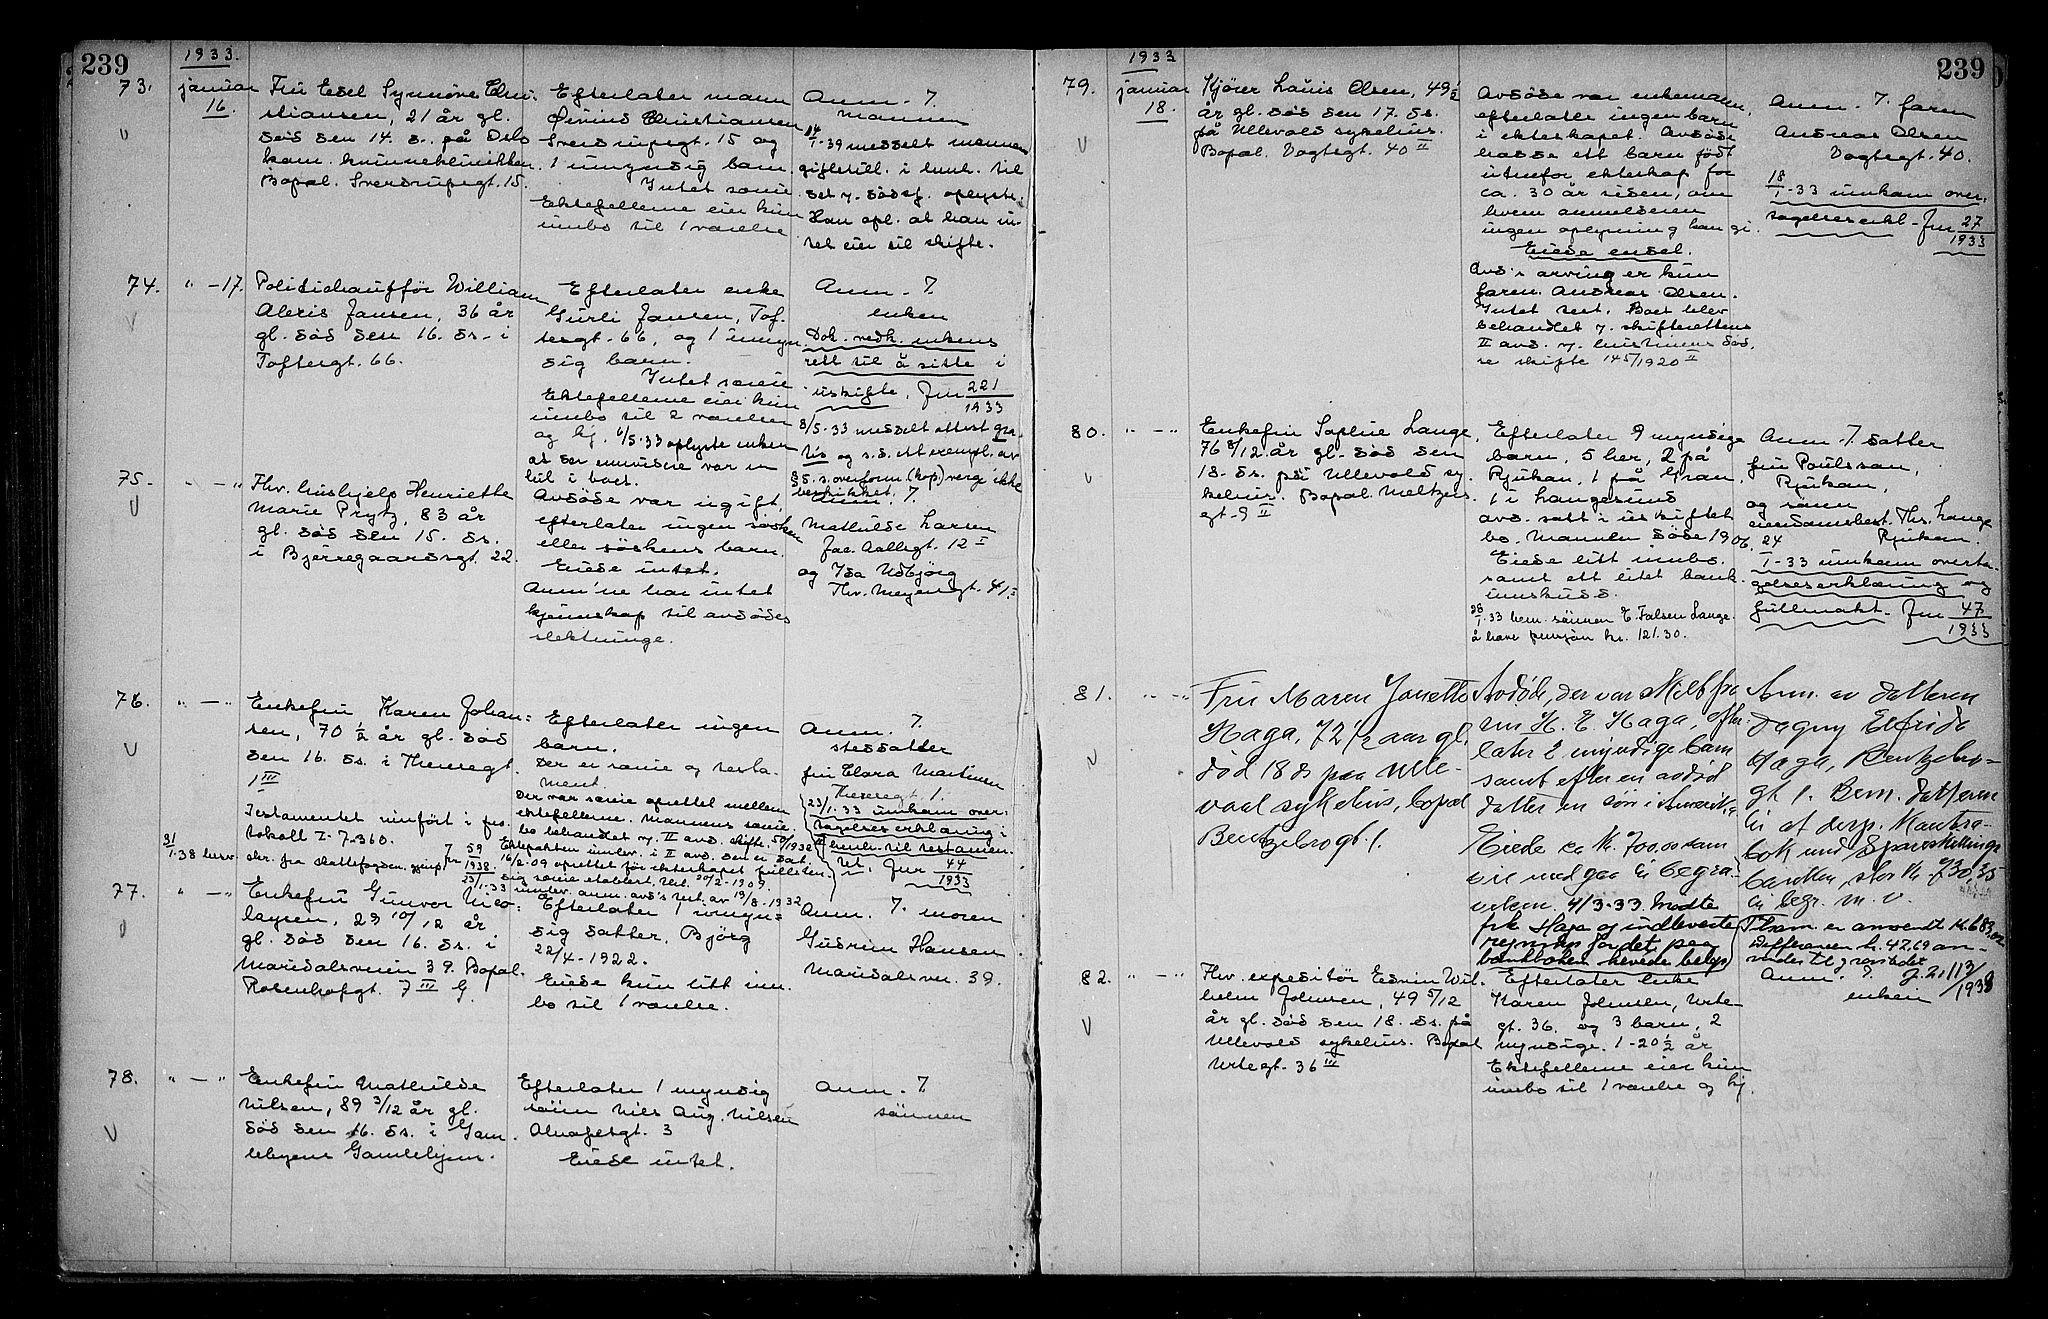 239
1933.
73. januar 16.
Fru Edel Synnöve Chri-
stiansen, 21 år gl.
död den 14. ds. på Oslo
kom. kvinneklinikken
Bopæl. Sverdrupsgt. 15.
Efterlater mann
Øivind Christiansen
Sverdrupsgt. 15 og
1 umyndig barn.
Intet særeie
Ektefellene eier kun
innbo til 1 værelse
Anm. 7.
mannen
1-39 meddelt mannen
giftetill. i henh. til
det v. dödsf. oplyste.
Han opl. at han in-
tet eier til skifte.
74. " - 17.
Politichaufför William
Alexis Jansen, 36 år
gl. död den 16. ds. i
Toftesgt. 66.
Efterlater enke
Gurli Jansen, Tof-
tesgt. 66, og 1 umyn-
dig barn.
Intet særeie
Ektefellene eier kun
innbo til 2 værelser
og kj. 6/5-33 oplyste enken
at der ennvidere var en
bil i boet.
Anm. 7.
enken
Dok. vedk. enkens
rett til å sitte i
uskifte. Jnr 221/1933
8/5-33 meddelt attest gra-
tis og s.d. ett exempl. av
§5. s. overform. (kap) verge ikke
beskikket.
75. " — "
Fhv. hushjelp Henriette
Marie Prytz, 83 år
gl. död den 15. ds.
i Bjerregaardsgt. 22.
Avdöde var ugift,
efterlater ingen sösken
eller söskens barn.
Eiede intet.
Anm'ne har intet
kjennskap til avdödes
slektninge.
Anm. 7.
Mathilde Larsen
Jac. Aallsgt. 12 I
og Ida Udbjörg
Thv. Meyersgt. 41.I
76. " — "
Enkefru Karen Johan-
sen, 70 1/2 år gl. död
den 16. ds. i Theresegt.
1 III
Testamentet innfört i pro-
tokoll I-7-360.
31/1-38 henv.
skr. fra skattefogden, Jnr 59/1938.
Efterlater ingen
barn.
Der er særeie og testa-
ment.
Der var særeie oprettet mellem
ektefellene. Mannens særeie-
bo behandlet v. II avd. skifte. 50/1932
Ektepakten innlev. i II avd. den er dat.
16/2-09 oprettet før ekteskapet fullsten-
dig særeie etablert. tinl. 20/2-1909.
23/1-33 innlev. anm. avd's test. av 19/8-1932
Anm. 7.
steddatter
fru Clara Martinsen
Theresegt 1.
23/1-33 innkom over-
tagelseserklæring i
henh. til testamen-
tet. Jnr 44/1933
77. " — "
Enkefru Gunvor Nico-
laysen, 29 10/12 år
gl. död den 16. ds. i
Maridalsveien 39. Bopæl.
Rosenhofgt. 7 III G.
Efterlater 1 umyn-
dig datter, Björg
22/4-1922.
Eiede kun litt inn-
bo til 1 værelse.
Anm. 7. moren
Gudrun Hansen
Maridalsvn. 39.
78. " — "
Enkefru Mathilde
Nilsen, 89 3/12 år gl.
död den 16. ds. i Gam-
lebyens Gamlehjem.
Efterlater 1 myndig
sönn Nils Aug. Nilsen
Almafetsgt. 3
Eiede intet.
Anm. 7.
sönnen
239
1933
79. januar 18.
Kjörer Louis Olsen, 49 1/2
år gl. död den 17. ds.
på Ullevold sykehus.
Bopæl. Vogtsgt. 40 II
Avdöde var enkemann,
efterlater ingen barn
i ekteskapet. Avdöde
hadde ett barn født
utenfor ekteskap for
ca. 30 år siden, om
hvem anmelderen
ingen oplysning kan gi.
Eiede endel.
Avd's arving er kun
faren Andreas Olsen.
Intet test. Boet blev
behandlet v. skifterettens
II avd. v. hustruens död,
se skifte 145/1920 II
Anm. 7. faren
Andreas Olsen
Vogtsgt. 40.
18/1-33 innkom over-
tagelseserkl. Jnr 27/1933
80. " — "
Enkefru Sophie Lange,
76 8/12 år gl. död den
18. ds. på Ullevold sy-
kehus. Bopæl. Meltzers-
gt. 9 II
Efterlater 9 myndige
barn, 5 her, 2 på
Rjukan, 1 på Gran,
1 i Langesund
avd. satt i uskiftet
bo. Mannen döde 1906.
Eiede litt innbo
samt ett litet bank-
innskudd.
28/1-33 bem. sönnen E. Falsen Lange
å have pensjon kr. 121.30.
Anm. 7. datter
fru Poulsson,
Rjukan,
og sönn
eiendomsbest. Thr. Lange
Rjukan.
24/1-33 innkom overta-
gelseserklæring og
fullmakt. Jnr 47/1933
81. " — "
Fru Maren Jonette
Haga, 72 1/2 aar gl.
död 18 ds paa Ulle-
vaal sykehus, bopæl
Bentzebrogt. 1.
Avdöde, der var skilt fra
urm. H. E. Haga, efter-
later 2 myndige barn
samt efter en avdöd
datter en sön i Amerika.
Eiede ca kr. 700.00 som
vil medgaa til begra-
velsen. 4/3-33. Mødte
frk Haga og indleverte
regnskap for det paa
bankboken hevede belöp
Anm. av datteren
Dagny Elfride
Haga, Bentzebro-
gt 1. Bem. datteren
til at disp. Kontra-
bok med Spareskillings-
banken, stor kr. 730,35
til begr. m. v.
Tilsam. er anvendt kr. 683,02
Differansen kr. 47.69 an-
vendes til gravstedet
J. 2. 113/1933
82. " — "
Fhv. expeditör Edvin Wil-
helm Johnsen, 49 5/12
år gl. död den 18. ds. på
Ullevold sykehus. Bopæl
Urtegt. 36 III
Efterlater enke
Karen Johnsen, Urte-
gt. 36. og 3 barn, 2
myndige. 1-20 1/2 år
Ektefellene eier kun
innbo til 1 værelse og kj.
Anm. 7.
enken